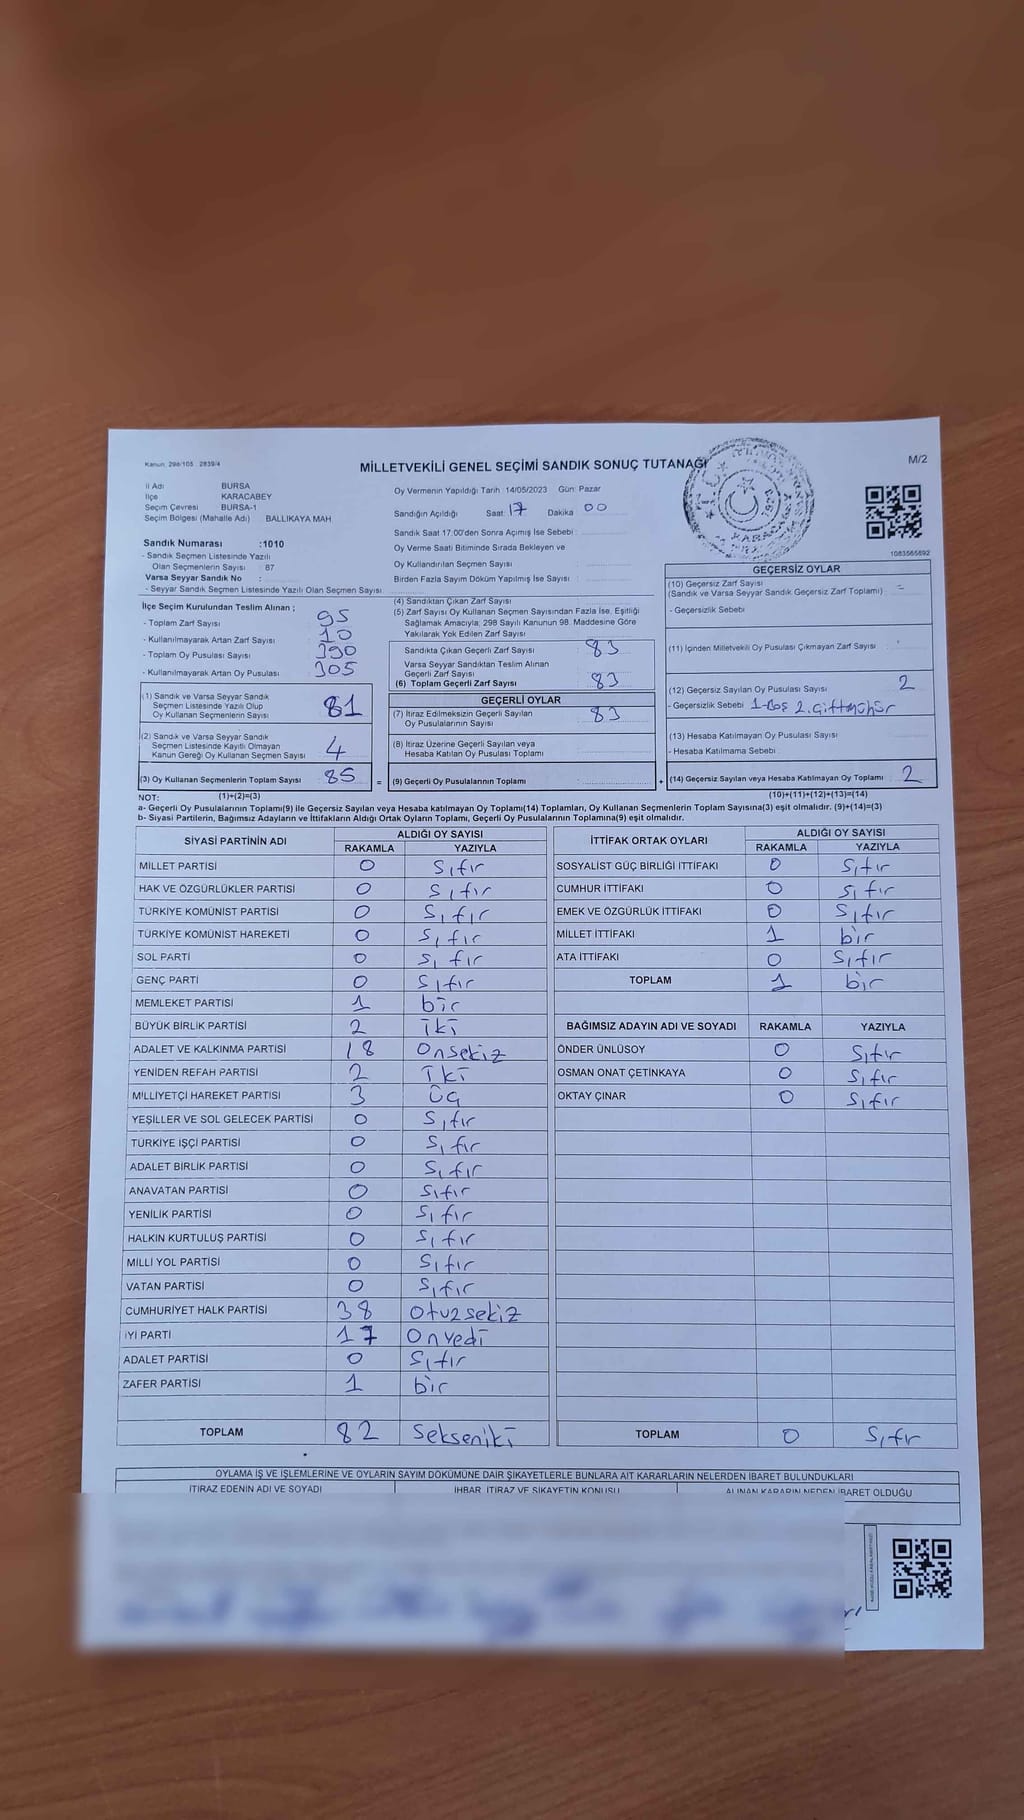 Kanun: 298/105 2839/4
MİLLETVEKİLİ GENEL SEÇİMİ SANDIK SONUÇ TUTANAĞI
M/2
İl Adı BURSA
İlçe KARACABEY
Seçim Çevresi BURSA-1
Seçim Bölgesi (Mahalle Adı) BALLIKAYA MAH.
Sandık Numarası :1010
- Sandık Seçmen Listesinde Yazılı
Olan Seçmenlerin Sayısı : 87
Varsa Seyyar Sandık No :
- Seyyar Sandık Seçmen Listesinde Yazılı Olan Seçmen Sayısı
Oy Vermenin Yapıldığı Tarih :14/05/2023 Gün: Pazar
Sandığın Açıldığı Saat 17 Dakika 00
Sandık Saat 17:00'den Sonra Açımış İse Sebebi :
Oy Verme Saati Bitiminde Sırada Bekleyen ve
Oy Kullandırılan Seçmen Sayısı
Birden Fazla Sayım Döküm Yapılmış İse Sayısı :
1083565692
İlçe Seçim Kurulundan Teslim Alınan ;
- Toplam Zarf Sayısı 95
- Kullanılmayarak Artan Zarf Sayısı 10
- Toplam Oy Pusulası Sayısı 390
- Kullanılmayarak Artan Oy Pusulası 305
(1) Sandık ve Varsa Seyyar Sandık
Seçmen Listesinde Yazılı Olup
Oy Kullanan Seçmenlerin Sayısı 81
(2) Sandık ve Varsa Seyyar Sandık
Seçmen Listesinde Kayıtlı Olmayan
Kanun Gereği Oy Kullanan Seçmen Sayısı 4
(3) Oy Kullanan Seçmenlerin Toplam Sayısı 85
(1)+(2)=(3)
(4) Sandıktan Çıkan Zarf Sayısı
(5) Zarf Sayısı Oy Kullanan Seçmen Sayısından Fazla İse, Eşitliği
Sağlamak Amacıyla; 298 Sayılı Kanunun 98. Maddesine Göre
Yakılarak Yok Edilen Zarf Sayısı
Sandıkta Çıkan Geçerli Zarf Sayısı 83
Varsa Seyyar Sandıktan Teslim Alınan
Geçerli Zarf Sayısı
(6) Toplam Geçerli Zarf Sayısı 83
GEÇERLİ OYLAR
(7) İtiraz Edilmeksizin Geçerli Sayılan
Oy Pusulalarının Sayısı 83
(8) İtiraz Üzerine Geçerli Sayılan veya
Hesaba Katılan Oy Pusulası Toplamı
= (9) Geçerli Oy Pusulalarının Toplamı
GEÇERSİZ OYLAR
(10) Geçersiz Zarf Sayısı
(Sandık ve Varsa Seyyar Sandık Geçersiz Zarf Toplamı) =
- Geçersizlik Sebebi
(11) İçinden Milletvekili Oy Pusulası Çıkmayan Zarf Sayısı
(12) Geçersiz Sayılan Oy Pusulası Sayısı 2
- Geçersizlik Sebebi 1-Boş 2. Çiftmühür
(13) Hesaba Katılmayan Oy Pusulası Sayısı
- Hesaba Katılmama Sebebi
+ (14) Geçersiz Sayılan veya Hesaba Katılmayan Oy Toplamı 2
(10)+(11)+(12)+(13)=(14)
NOT:
a- Geçerli Oy Pusulalarının Toplamı(9) ile Geçersiz Sayılan veya Hesaba katılmayan Oy Toplamı(14) Toplamları, Oy Kullanan Seçmenlerin Toplam Sayısına(3) eşit olmalıdır. (9)+(14)=(3)
b- Siyasi Partilerin, Bağımsız Adayların ve İttifakların Aldığı Ortak Oyların Toplamı, Geçerli Oy Pusulalarının Toplamına(9) eşit olmalıdır.
SİYASİ PARTİNİN ADI ALDIĞI OY SAYISI
RAKAMLA YAZIYLA
MİLLET PARTİSİ 0 Sıfır
HAK VE ÖZGÜRLÜKLER PARTİSİ 0 Sıfır
TÜRKİYE KOMÜNİST PARTİSİ 0 Sıfır
TÜRKİYE KOMÜNİST HAREKETİ 0 Sıfır
SOL PARTİ 0 Sıfır
GENÇ PARTİ 0 Sıfır
MEMLEKET PARTİSİ 1 bir
BÜYÜK BİRLİK PARTİSİ 2 iki
ADALET VE KALKINMA PARTİSİ 18 Onsekiz
YENİDEN REFAH PARTİSİ 2 iki
MİLLİYETÇİ HAREKET PARTİSİ 3 Üç
YEŞİLLER VE SOL GELECEK PARTİSİ 0 Sıfır
TÜRKİYE İŞÇİ PARTİSİ 0 Sıfır
ADALET BİRLİK PARTİSİ 0 Sıfır
ANAVATAN PARTİSİ 0 Sıfır
YENİLİK PARTİSİ 0 Sıfır
HALKIN KURTULUŞ PARTİSİ 0 Sıfır
MİLLİ YOL PARTİSİ 0 Sıfır
VATAN PARTİSİ 0 Sıfır
CUMHURİYET HALK PARTİSİ 38 Otuzsekiz
İYİ PARTİ 17 Onyedi
ADALET PARTİSİ 0 Sıfır
ZAFER PARTİSİ 1 bir
TOPLAM 82 Sekseniki
İTTİFAK ORTAK OYLARI ALDIĞI OY SAYISI
RAKAMLA YAZIYLA
SOSYALİST GÜÇ BİRLİĞİ İTTİFAKI 0 Sıfır
CUMHUR İTTİFAKI 0 Sıfır
EMEK VE ÖZGÜRLÜK İTTİFAKI 0 Sıfır
MİLLET İTTİFAKI 1 bir
ATA İTTİFAKI 0 Sıfır
TOPLAM 1 bir
BAĞIMSIZ ADAYIN ADI VE SOYADI RAKAMLA YAZIYLA
ÖNDER ÜNLÜSOY 0 Sıfır
OSMAN ONAT ÇETİNKAYA 0 Sıfır
OKTAY ÇINAR 0 Sıfır
TOPLAM 0 Sıfır
OYLAMA İŞ VE İŞLEMLERİNE VE OYLARIN SAYIM DÖKÜMÜNE DAİR ŞİKAYETLERLE BUNLARA AİT KARARLARIN NELERDEN İBARET BULUNDUKLARI
İTİRAZ EDENİN ADI VE SOYADI İHBAR, İTİRAZ VE ŞİKAYETİN KONUSU ALINAN KARARIN NEDEN İBARET OLDUĞU